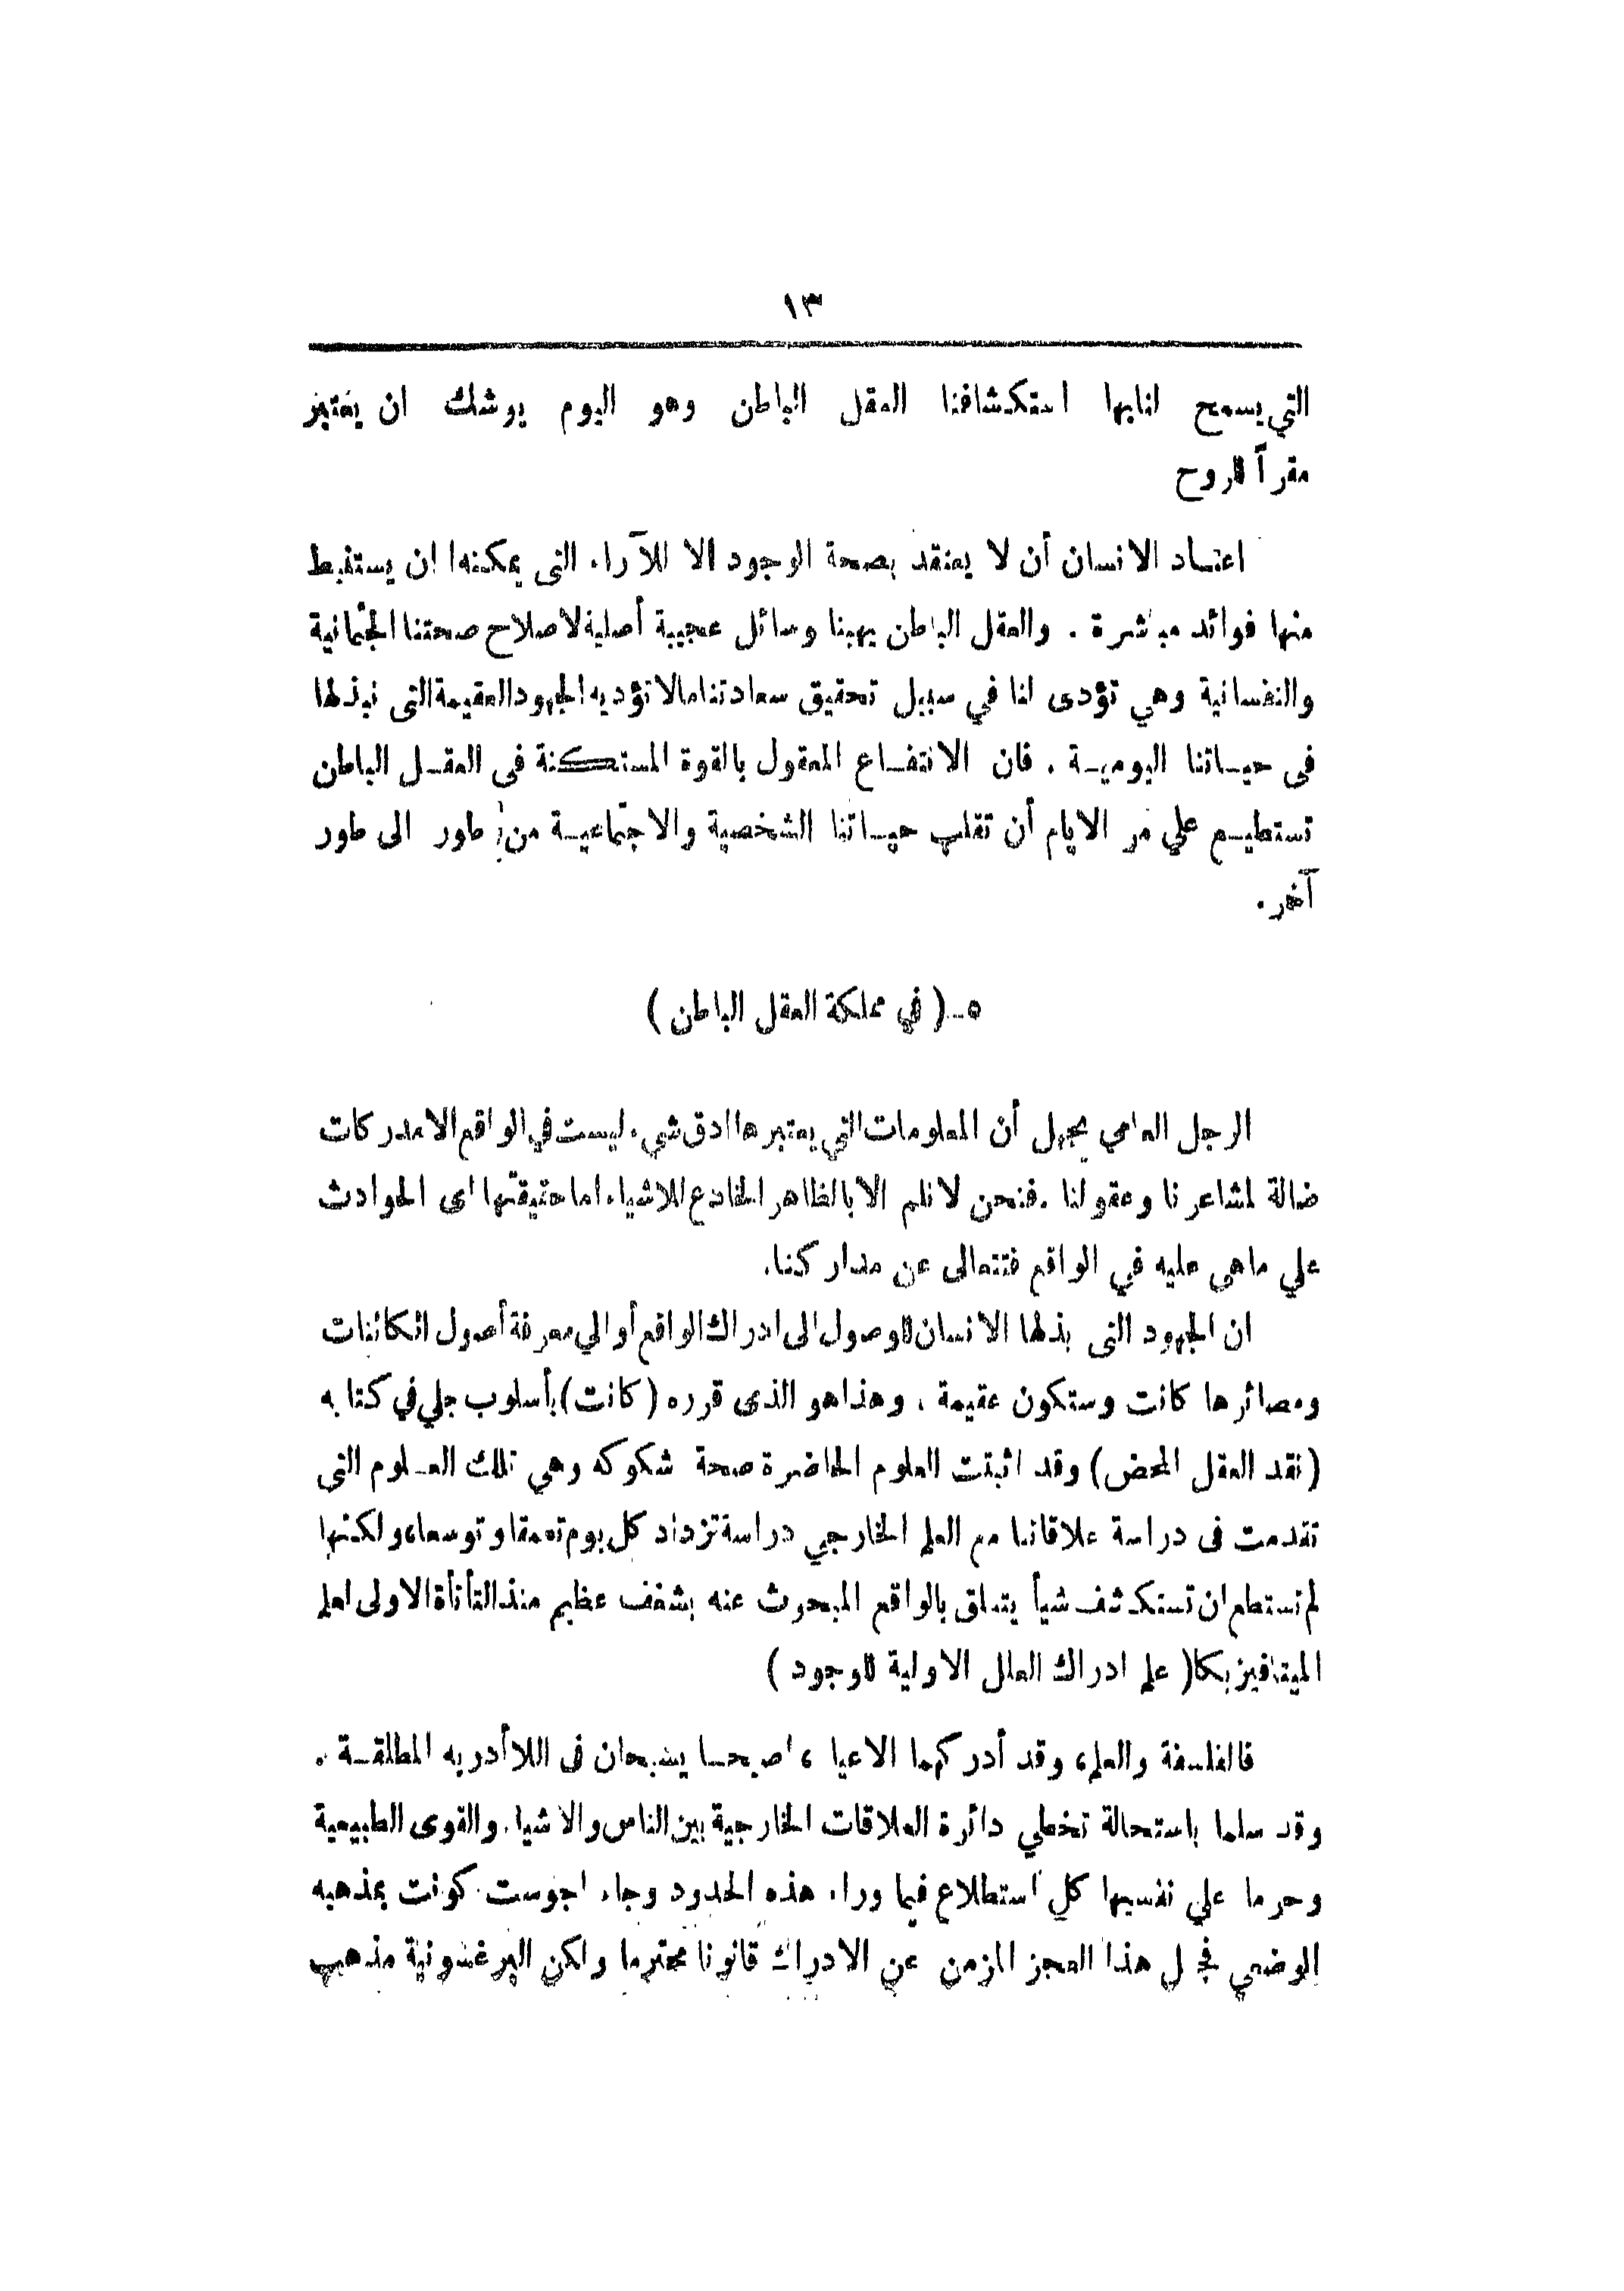 ١٣
التي يسمح لنا بها استكشافنا العقل الباطن وهو اليوم يوشك ان يعتبر
مقراً للروح
اعتاد الانسان أن لا يعتقد بصحة الوجود الا للآراء التى يمكنه ان يستنبط
منها فوائد مباشرة . والعقل الباطن يهبنا وسائل عجيبة أصلية لاصلاح صحتنا الجثمانية
والنفسانية وهي تؤدى لنا في سبيل تحقيق سعادتنا مالا تؤديه الجهود العقيمة التى نبذلها
فى حياتنا اليومية . فان الانتفاع المعقول بالقوة المستكنة فى العقل الباطن
تستطيع علي مر الايام أن تقلب حياتنا الشخصية والاجتماعية من طور الى طور
آخر .
٥ــ( في مملكة العقل الباطن )
الرجل العامي يجهل أن المعلومات التي يعتبرها ادق شيء ليست في الواقع الا مدركات
ضالة لمشاعرنا وعقولنا . فنحن لا نلم الا بالظاهر الخادع للاشياء اما حقيقتها اى الحوادث
علي ماهى عليه في الواقع فتتعالى عن مداركنا.
ان الجهود التى بذلها الانسان للوصول الى ادراك الواقع أو الي معرفة أصول الكائنات
ومصائرها كانت وستكون عقيمة ، وهذا هو الذى قرره (كانت) بأسلوب جلي في كتابه
(نقد العقل المحض) وقد اثبتت العلوم الحاضرة صحة شكوكه وهي تلك العلوم التى
تقدمت فى دراسة علاقاتنا مع العلم الخارجي دراسة تزداد كل يوم تعمقا وتوسعا، ولكنها
لم تستطع ان تستكشف شيأ يتعلق بالواقع المبحوث عنه بشغف عظيم منذ التأتأة الاولى لعلم
الميتافيزيكا( علم ادراك العلل الاولية للوجود )
فالفلسفة والعلم، وقد أدركهما الاعياء ، اصبحا يسبحان فى اللاأدريه المطلقة .
وقد سلما باستحالة تخطي دائرة العلاقات الخارجية بين الناس والاشياء والقوى الطبيعية
وحرما علي نفسيهما كل استطلاع فيما وراء هذه الحدود وجاء اجوست كونت بمذهبه
الوضعي فجعل هذا العجز المزمن عن الادراك قانونا محترما ولكن البرغسونية مذهب